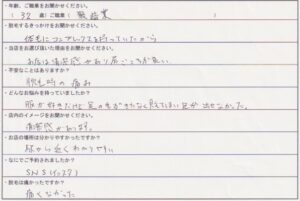 ・年齢、ご職業をお聞かせください。
( 32 歳 ) ご職業 ( 販売業 )
・脱毛するきっかけをお聞かせください。
体毛にコンプレックスを持っていたから
・当店をお選び頂いた理由をお聞かせください。
お店は清潔感があり居ごこちが良い。
・不安なことはありますか?
脱毛時の痛み
・どんなお悩みを持っていましたか?
服が好きだけど足の毛がきたなく見えてしまい足が出せなかった。
・店内のイメージをお聞かせください。
清潔感があります。
・お店の場所は分かりやすかったですか?
駅から近くわかりやすい
・なにでご予約されましたか?
SNS(インスタ)
・脱毛は痛かったですか?
痛くなかった